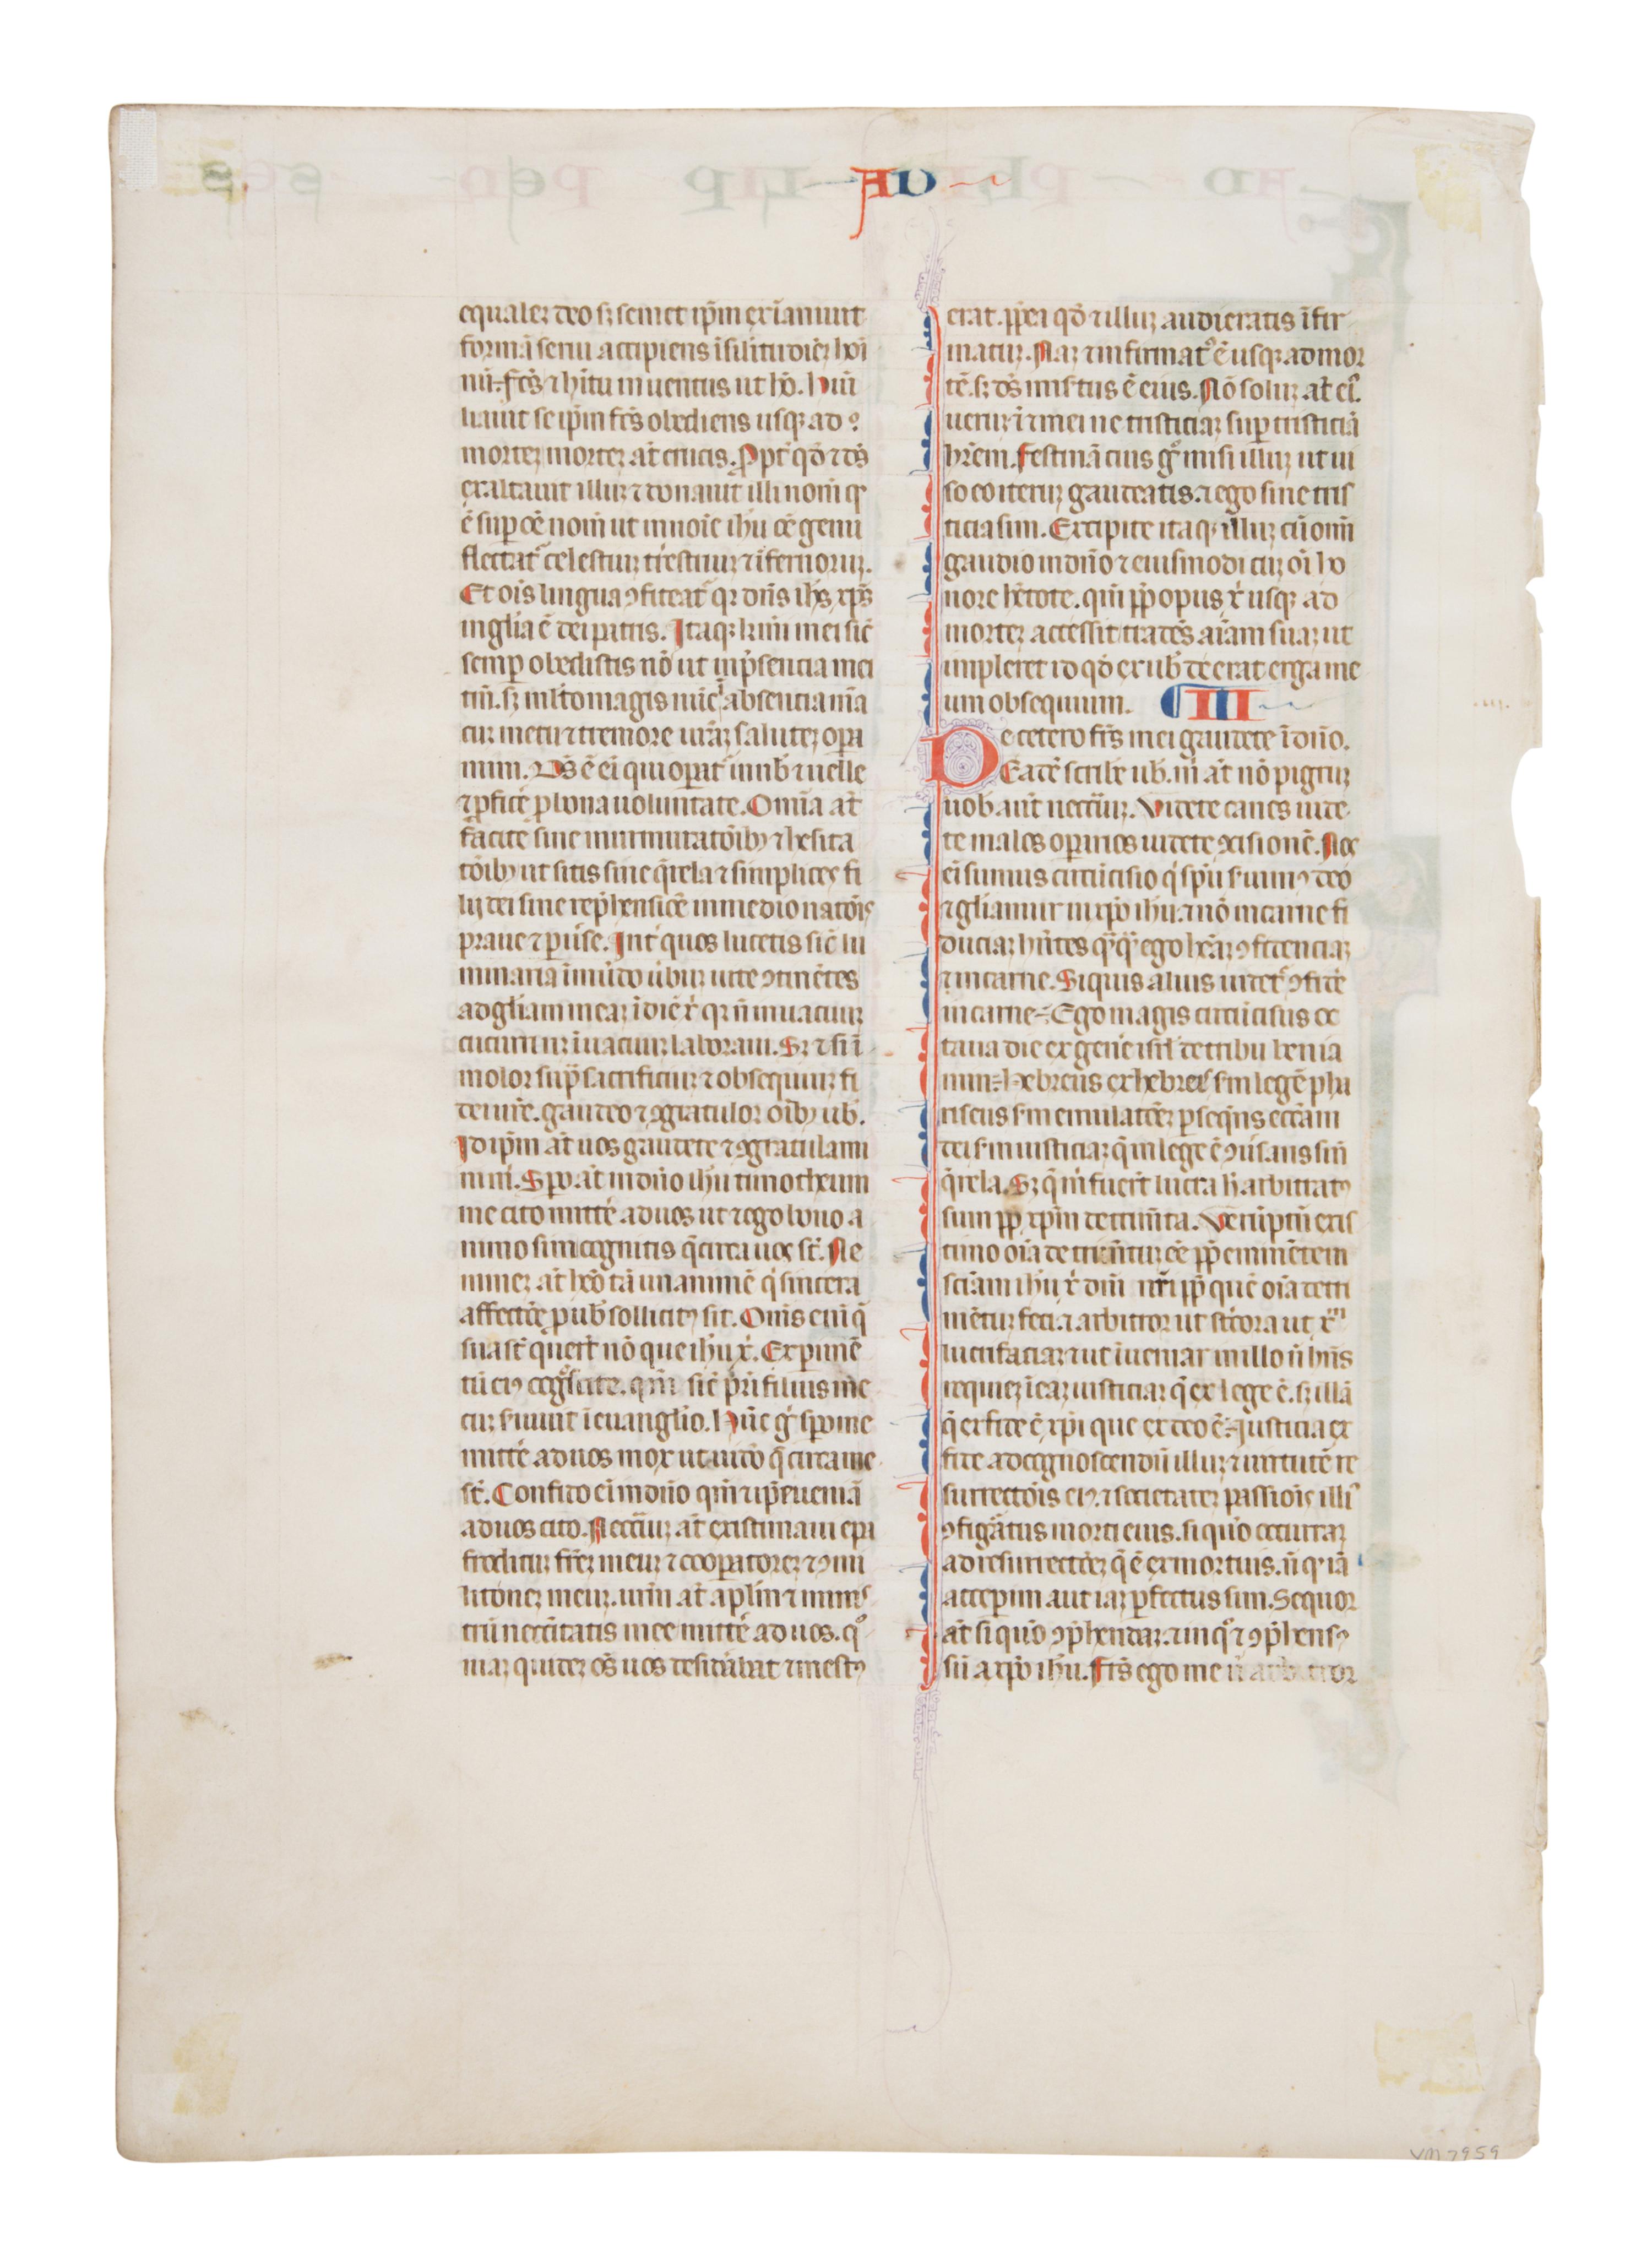 AD
equalez deo sz semet ip̄m exīaniuit
formā serui accipiens ī similitudiēz hoī
nū. fcs̄ ⁊ hītu inuentus ut hō. Humi
liauit se ip̄m fcs̄ obediens usqz ad
mortez mortez at̄ crucis. Propt̄ qđ ⁊ ds̄
exaltauit illuz ⁊ donauit illi nom̄ qđ
ē sup̄ oē nom̄ ut in noīe ihū oē genu
flectat᷑ celestiuz tr̄estriuz ⁊ īfernoruz.
Et oīs lingua ꝯfiteat᷑ qz dn̄s ihs̄ xp̄s
in gl̄ia ē dei patris. Itaqz kmī mei sic̄
semp̄ obedistis nō ut in p̄sencia mei
tm̄. sz ml̄to magis nūc ī absencia mā
cuz metu ⁊ tremore ur̄āz salutez opa
mini. Ds̄ ē ei qui opat᷑ in uob̄ ⁊ uelle
⁊ p̄fice p̄ bona uoluntate. Omīa at̄
facite sine murmuratōībꝫ ⁊ hesita
tōībꝫ ut sitis sine q̄rela ⁊ simplices fi
lij dei sine rep̄hensiōe in medio natōīs
praue ⁊ puīse. Int̄ quos lucetis sic̄ lu
minaria ī mūdo ūbuz uite ꝯtinētes
ad gl̄iam meaz ī diē xī qz nī in uacuuz
cucurri nz ī uacuuz laboraui. Sz ⁊ si ī
molor sup̄ sacrificiuz ⁊ obsequiuz fi
dei ur̄e. gaudeo ⁊ ꝯgratulor oībꝫ uob̄.
Id ip̄m at̄ uos gaudete ⁊ ꝯgratulami
m̄. Spo at̄ in dn̄o ihū timotheum
me cito mitte ad uos ut ⁊ ego bono a
nimo sim cognitis q̄ circa uos st̄. Ne
minez at̄ hēo tā unanimē qi sincera
affectōe p̄ uob̄ sollicitꝰ sit. Om̄s eni q̄
sua st̄ querūt nō que ihū xī. Experimē
tū eiꝰ cogscite. qm̄ sic̄ pr̄i filius me
cuz suiuit ī euanglio. Hūc gͥ spo me
mitte ad uos mox ut uidō q̄ circa me
st̄. Confido ei in dn̄o qm̄ ⁊ ip̄e ueniā
ad uos cito. Necc̄iuz at̄ existimaui epa
froditum fr̄ez meuz ⁊ cooperatorez ⁊ ꝯmi
litonez meuz. urm̄ at̄ aplm̄ ⁊ minis
trū necc̄itatis mee mitte ad uos. qͦ
niaz quidez os̄ uos desiderabat ⁊ mestꝰ
erat. pp̄ea qđ ⁊ illuz audieratis īfir
matuz. Naz ⁊ infirmatꝰ ē usqz ad mor
tē. sz ds̄ misertus ē eius. Nō soluz at̄ eiꝰ
ueruz ⁊ mei ne tristiciaz sup̄ tristiciā
hr̄em. Festinācius gͦ misi illuz ut ui
so eo iteruz gaudeatis. ⁊ ego sine tris
ticia sim. Excipite itaqz illuz cū omī
gaudio in dn̄o ⁊ eiusmodi cuz oī ho
nore hētote. qm̄ pp̄ opus xī usqz ad
mortez accessit tradēs aīam suaz ut
impleret id qđ ex uob̄ deerat erga me
um obsequium. III
De cetero frs̄ mei gaudete ī dn̄o.
Eadē scribe uob̄. m̄ at̄ nō pigruz
uob̄. aut̄ necc̄iuz. Videte canes uide
te malos oparios uidete ꝯcisionē. Nos
ei sumus circūcisio qi spū suimꝰ deo
⁊ gl̄iamur in xpo ihū. ⁊ nō in carne fi
duciaz hn̄tes qͣqͣ ego hēaz ꝯfidenciaz
⁊ in carne. Siquis alius uidet᷑ ꝯfide
in carne. Ego magis circūcisus oc
taua die ex gene isrl de tribu benia
min. Hebreus ex hebreis. sm legē pha
riseus. sm emulatōez p̄seqn̄s eccāam
dei. sm iusticiaz q̄ in lege ē ꝯūsatus sin̄
q̄rela. Sz q̄ m̄ fuerūt lucra h̄ arbitratꝰ
sum pp̄ xpm̄ detrim̄ta. Verūptn̄ exis
timo oīa detrim̄tuz ēe pp̄ eminētem
sciām ihū xī dm̄i nri pp̄ quē oīa detri
mētuz feci. ⁊ arbitror ut stercora ut xm
lucrifaciaz ⁊ ut īueniar in illo n̄ hn̄s
iequiez īeaz iusticiaz q̄ ex lege ē. sz illā
q̄ ex fide ē xpi que ex deo ē iusticia ex
fide ad cognoscendū illuz ⁊ uirtutē re
surrectōis eiꝰ. ⁊ societatez passiōis illiꝰ
ꝯfiguratus morti eius. si quo occurraz
ad resurrectōez q̄ ē ex mortuis. n̄ qͥ iā
acceperim aut iaz p̄fectus sim. Sequor
at̄ si quo ꝯp̄hendaz. ⁊ in qͦ ⁊ ꝯp̄hensꝰ
sū a xpo ihū. Frs̄ ego me n̄ arbitror
VM 7959